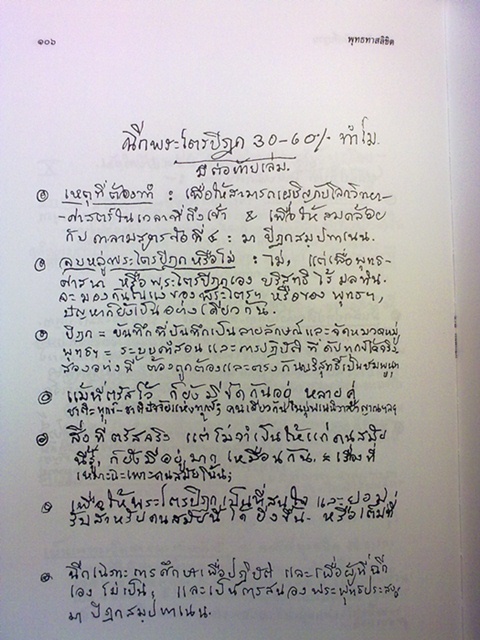 ๑๐๖
พุทธทาสลิขิต
ฉีกพระไตรปิฎก 30-60% ทำไม.
มีต่อท้ายเล่ม.
๑ เหตุที่ต้องทำ : เพื่อให้สามารถเผชิญกับโลกวิทยา-
-ศาสตร์ในเวลาที่ถึงเข้า & เพื่อให้สอดคล้อย
กับ กาลามสูตรข้อที่ ๔ : มา ปิฎกสมฺปทาเนน.
๒ ลบหลู่พระไตรปิฎกหรือไม่ : ไม่, แต่เพื่อพุทธ-
ศาสนา หรือพระไตรปิฎกเอง บริสุทธิ์ ไร้ มลทิน.
จะมองกันในแง่ของพระไตรฯ หรือของ พุทธฯ,
ปัญหาก็ยังเป็นอย่างเดียวกัน.
๓ ปิฎก = บันทึกที่บันทึกเป็นลายลักษณ์และจัดหมวดหมู่
พุทธฯ = ระบบคำสอน และการปฏิบัติ ที่ดับทุกข์ได้จริง
สองอย่างนี้ ต้องถูกต้องและตรงกัน
๔ แม้ที่ตรัสไว้ ก็ยังมีขัดกันอยู่ หลายคู่
๕ สิ่งที่ตรัสจริง แต่ไม่จำเป็นให้แก่คนสมัย
นี้รู้, ก็ยังมีอยู่มาก เหมือนกัน. เรื่องที่
เหมาะเฉพาะคนสมัยโน้น;
๖ เพื่อให้พระไตรปิฎกเป็นที่สนใจ และยอม
รับสำหรับคนสมัยนี้ ได้ ยิ่งขึ้น- หรือเต็มที่
๗ ฉีกเพื่อการศึกษาเพื่อปฏิบัติ และเพื่อผู้ที่ฉีก
เอง ไม่เป็น, และเป็นการสนองพระพุทธประสงค์
มา ปิฎกสมฺปทาเนน.